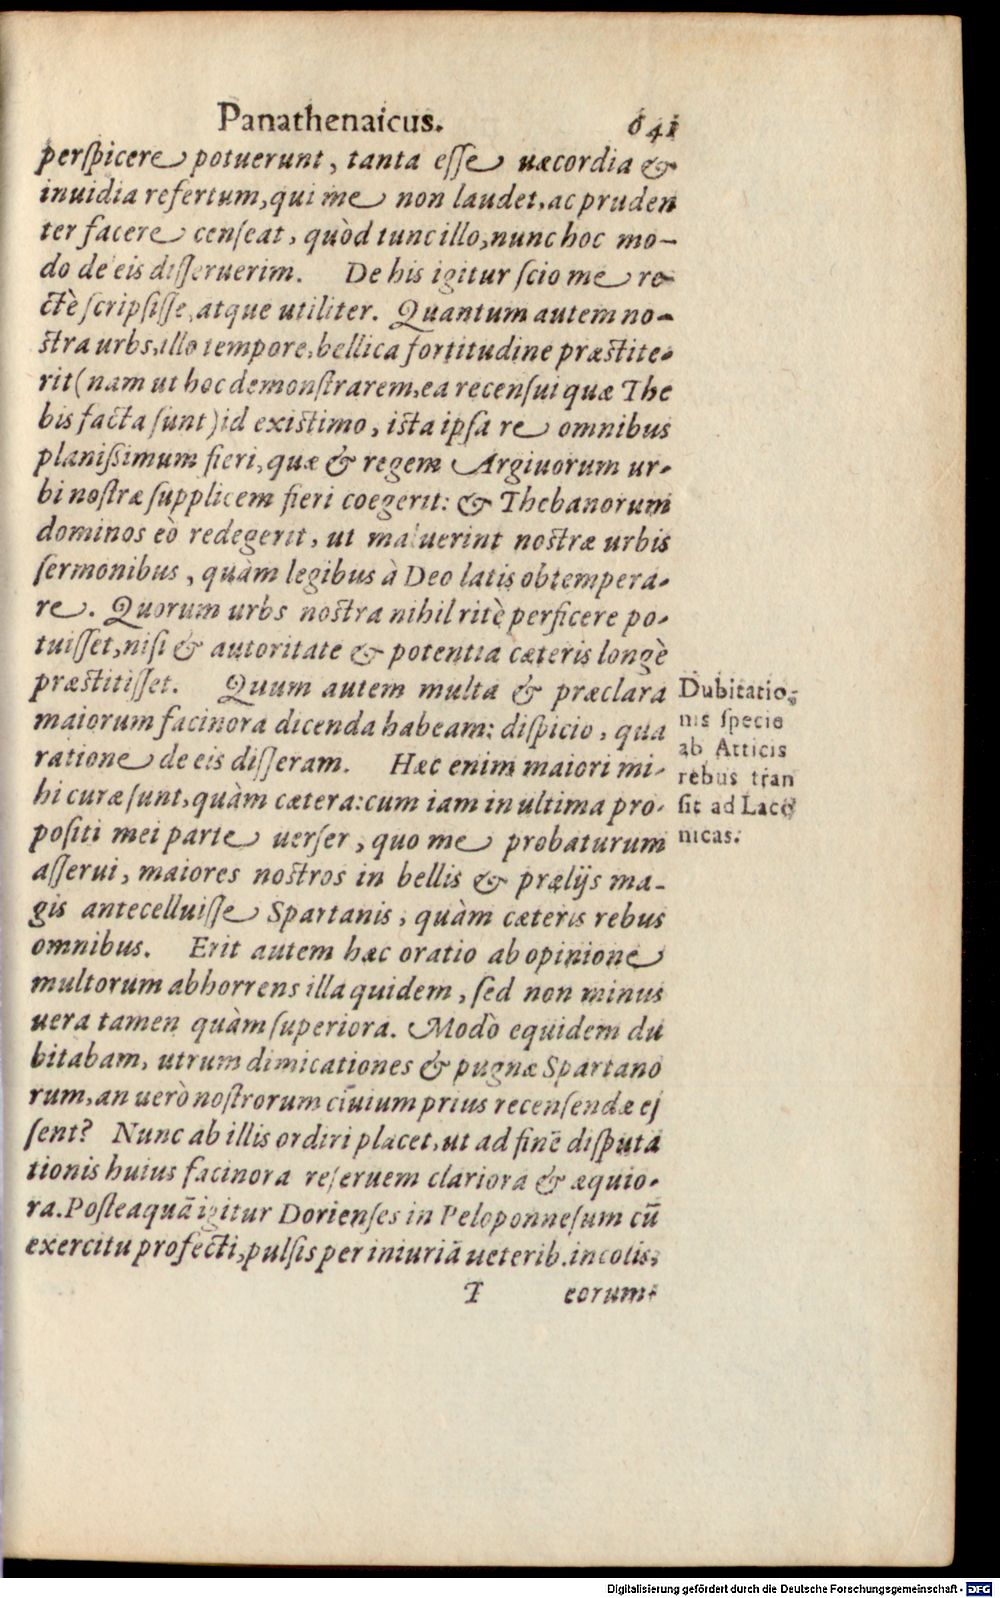 Panathenaicus. 641
perſpicere potuerunt, tanta eſſe uæcordia &
inuidia refertum, qui me non laudet, ac pruden
ter facere cenſeat, quòd tunc illo, nunc hoc mo-
do de eis diſſeruerim. De his igitur ſcio me re-
ctè ſcripſiſſe, atque utiliter. Quantum autem no-
ſtra urbs, illo tempore, bellica fortitudine præſtite-
rit (nam ut hoc demonſtrarem, ea recenſui quæ The
bis facta ſunt) id exiſtimo, iſta ipſa re omnibus
planiſsimum fieri, quæ & regem Argiuorum ur-
bi noſtræ ſupplicem fieri coegerit: & Thebanorum
dominos eò redegerit, ut maluerint noſtræ urbis
ſermonibus, quàm legibus à Deo latis obtempera-
re. Quorum urbs noſtra nihil ritè perficere po-
tuiſſet, niſi & autoritate & potentia cæteris longè
præſtitiſſet. Quum autem multa & præclara
maiorum facinora dicenda habeam: diſpicio, qua
ratione de eis diſſeram. Hæc enim maiori mi-
hi curæ ſunt, quàm cætera: cum iam in ultima pro-
poſiti mei parte uerſer, quo me probaturum
aſſerui, maiores noſtros in bellis & prælijs ma-
gis antecelluiſſe Spartanis, quàm cæteris rebus
omnibus. Erit autem hæc oratio ab opinione
multorum abhorrens illa quidem, ſed non minus
uera tamen quàm ſuperiora. Modò equidem du
bitabam, utrum dimicationes & pugnæ Spartano
rum, an uerò noſtrorum ciuium prius recenſendæ eſ
ſent? Nunc ab illis ordiri placet, ut ad finē diſputa
tionis huius facinora reſeruem clariora & æquio-
ra. Poſteaquā igitur Dorienſes in Peloponneſum cū
exercitu profecti, pulſis per iniuriā ueterib. incolis,
T eorum
Dubitatio-
nis ſpecie
ab Atticis
rebus tran
ſit ad Laco
nicas.
Digitalisierung gefördert durch die Deutsche Forschungsgemeinschaft - DFG